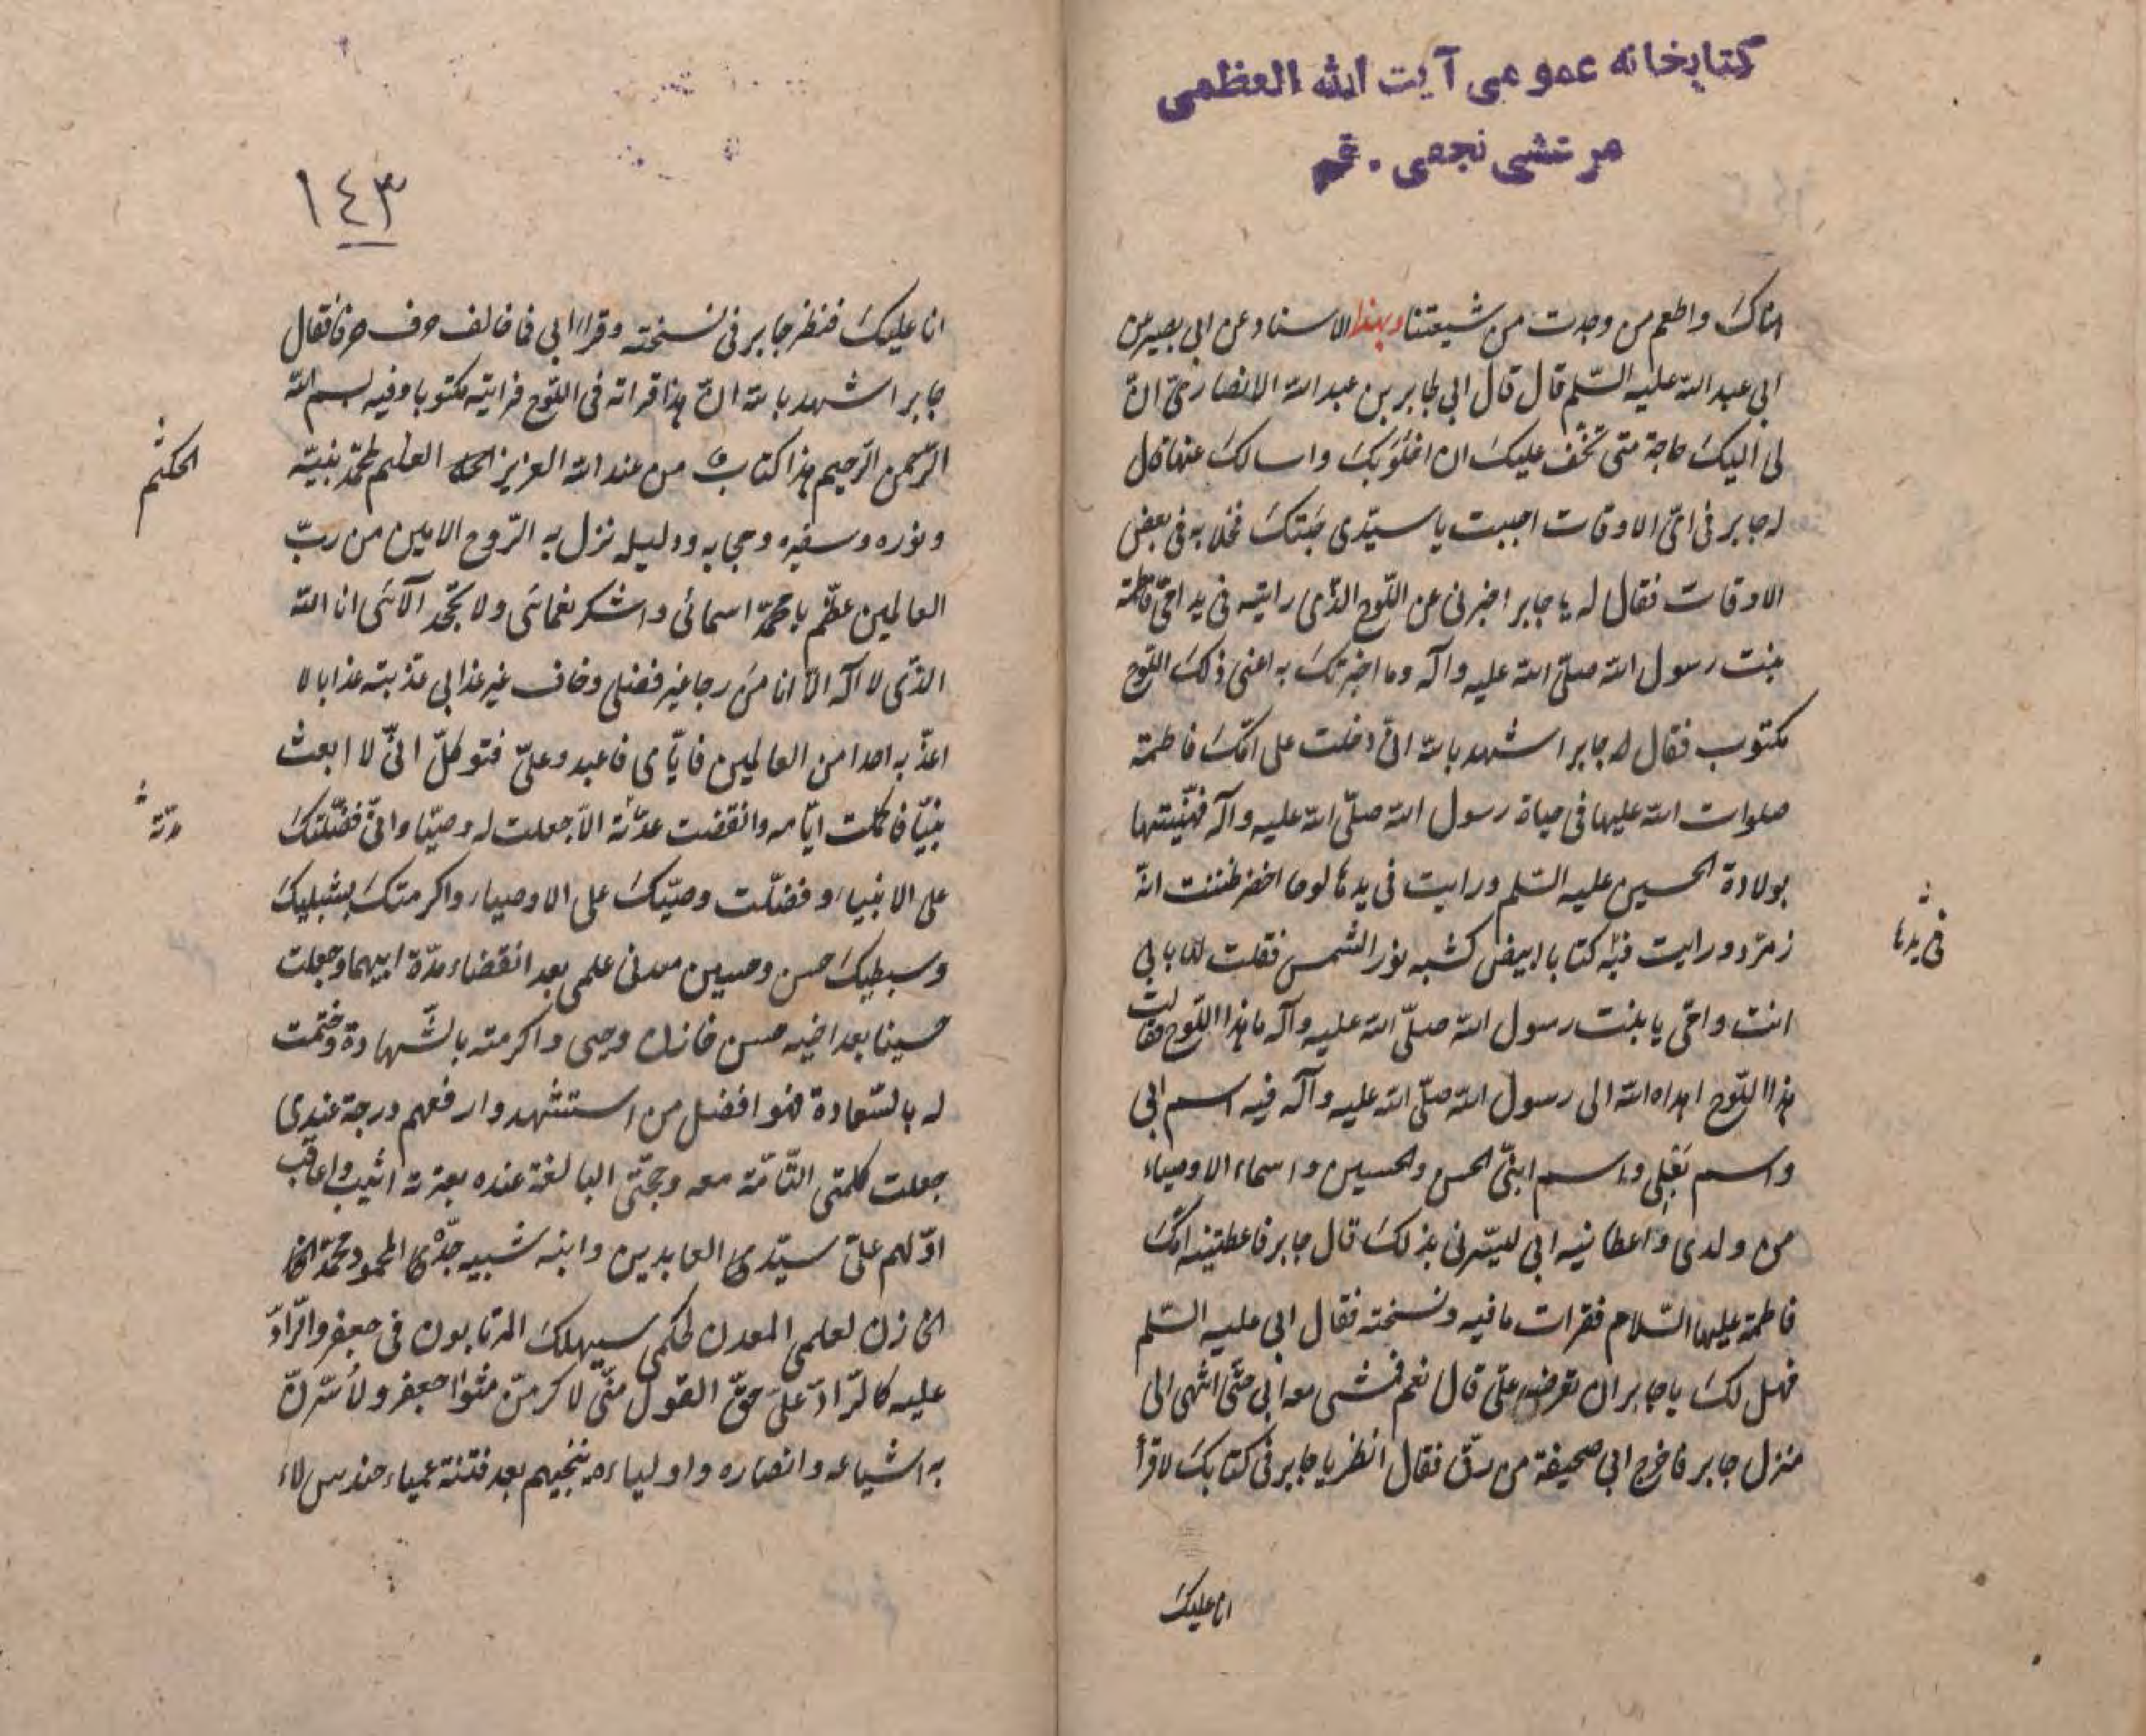 كتابخانه عمومی آیت الله العظمی
مرعشی نجفی . قم
هناك واطعم من وجدت من شيعتنا وبهذا الاسناد عن ابی بصير عن
ابی عبد الله عليه السّلم قال قال ابی لجابر بن عبد الله الانصاری انّ
لی اليك حاجة متی تخّف عليك ان اخلُوَ بك واسالك عنها قال
له جابر فی ایّ الاوقات احببت يا سيّدی جئتك فخلا به فی بعض
الاوقات فقال له يا جابر اخبرنی عن اللّوح الذّی رايته فی يد امّی فاطمة
بنت رسول الله صلّی الله عليه وآله وما اخبرتك به اعنی ذلك اللّوح
مكتوب فقال له جابر اشهد بالله انّی دخلت علی امّك فاطمة
صلوات الله عليها فی حياة رسول الله صلّی الله عليه وآله فهنّيتها
بولادة الحسين عليه السّلم ورايت فی يدها لوحا اخضر ظننت انّه
فی يدها
زمرّد ورايت فيه كتابا ابيض كشبه نور الشمس فقلت لها بابی
انت وامّی يا بنت رسول الله صلّی الله عليه وآله ما هذا اللّوح فقالت
هذا اللّوح اهداه الله الی رسول الله صلّی الله عليه وآله فيه اسم ابی
واسم بَعلی واسم ابنیّ الحسن والحسين واسماء الاوصياء
من ولدی واعطانيه ابی ليسّرنی بذلك قال جابر فاعطتينه امّك
فاطمة عليها السّلام فقرات ما فيه ونسخته فقال ابی عليه السّلم
فهل لك يا جابر ان تعرضه علیّ قال نعم فمشی معه ابی حتّی انتهی الی
منزل جابر فاخرج ابی صحيفة من رقّ فقال انظر يا جابر فی كتابك لاقرأ
انا عليك
١٤٣
انا عليك فنظر جابر فی نسخته وقراا ابی فما خالف حرف حرفا فقال
جابر اشهد بالله انّی هذا قراته فی اللّوح فرايته مكتوبا وفيه بسم الله
الرّحمن الرّحيم هذا كتاب من عند الله العزيز العليم لمحمّد نبيّه
الحكيم
ونوره وسفيره وحجابه ودليله نزل به الرّوح الامين من ربّ
العالمين عظّم يا محمّد اسمائی واشكر نعمائی ولا تجحد آلائی انا الله
الذّی لا اله الّا انا من رجا غير فضلی وخاف غير عذابی عذبته عذابا لا
اعذّبه احدا من العالمين فايّای فاعبد وعلیّ فتوكلّ انّی لا ابعث
نبيّا فاكملت ايّامه وانقضت عدّته الّا جعلت له وصيّا وانّی فضّلتك
مدّته
علی الانبياء وفضّلت وصيّك علی الاوصياء واكرمتك بشبليك
وسبطيك حسن وحسين معدنی علمی بعد انقضاء مدّة ابيهما وجعلت
حسينا بعد اخيه حسن خازن وحيی واكرمته بالشّهادة وختمت
له بالسّعادة فهو افضل من استشهد وارفعهم درجة عندی
جعلت كلمتی التّامّة معه وحجّتی البالغة عنده بعترته اثيب واعاقب
اوّلهم علیّ سيّدی العابدين وابنه شبيه جدّی المحمود محمّد
الخازن لعلمی المعدن لحكمی سيهلك المرتابون فی جعفر والرّادّ
عليه كالرّادّ علیّ حقّ القول منّی لاكرمنّ مثوا جعفر ولأسّرنّ
به اشياعه وانصاره واولياءه ننجيهم بعد فتنة عمياء حندس لاء